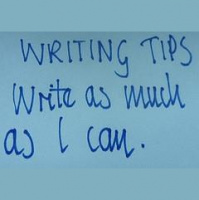 WRITING TIPS
Write as much
as I can.